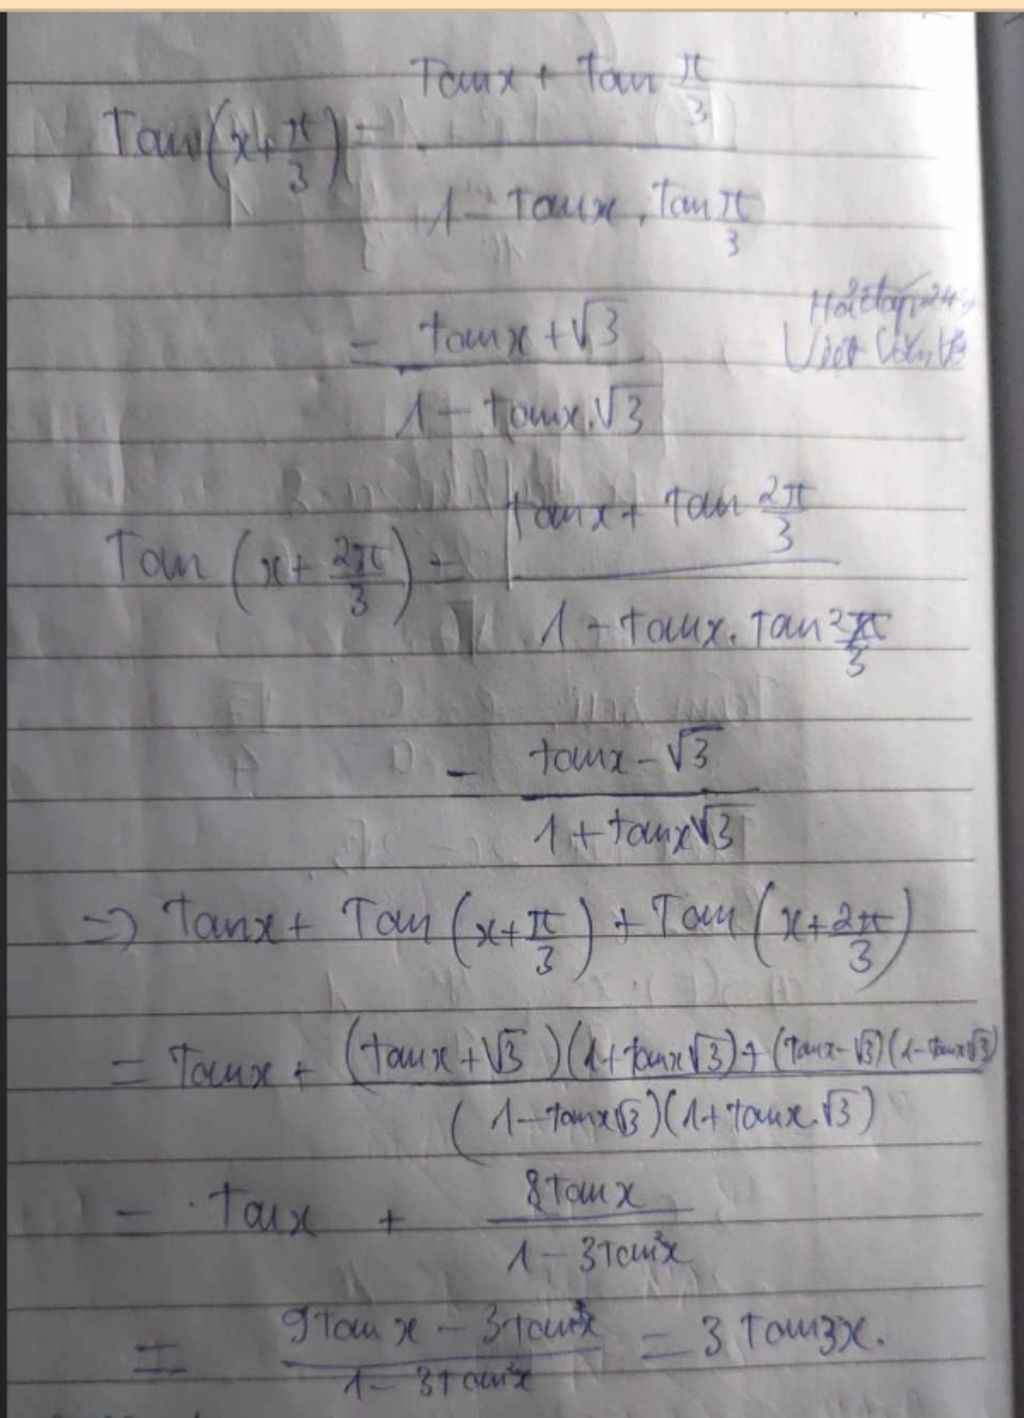 Tan(x+π/3) = (Tanx + tan π/3)/(1 - tanx . tan π/3)
= (tanx + √3)/(1 - tanx.√3)
Tan (x + 2π/3) = (tanx + tan 2π/3)/(1 - tanx. tan 2π/3)
= (tanx - √3)/(1 + tanx√3)
=> Tanx + Tan (x+π/3) + Tan (x+2π/3)
= Tanx + ((tanx+√3)(1+tanx√3)+(tanx-√3)(1-tanx√3))/((1-tanx√3)(1+tanx.√3))
= Tanx + 8tanx/(1 - 3tan²x)
= (9tanx - 3tan³x)/(1 - 3tan²x) = 3 tan3x.